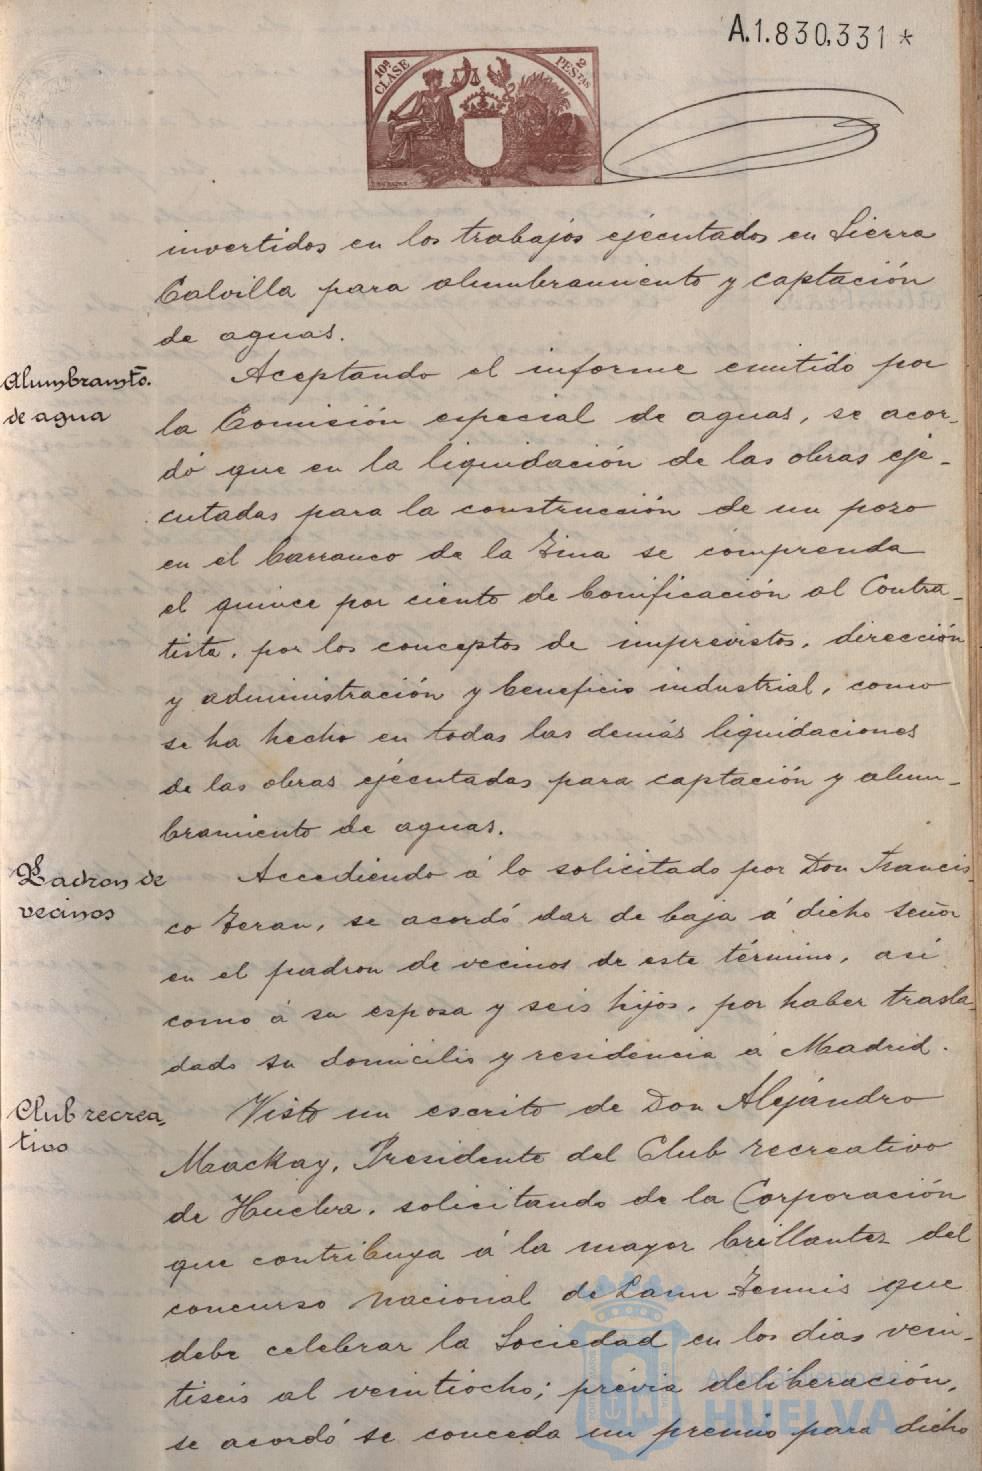 A.1.830,331 *
10ª CLASE
2 PESTAS
invertidos en los trabajos ejécutados en Sierra
Calvilla para alumbramiento y captación
de aguas.
Alumbramto.
de agua
Aceptando el informe emitido por
la Comisión especial de aguas, se acor-
dó que en la liquidación de las obras eje-
cutadas para la construcción de un pozo
en el barranco de la se comprenda
el quince por ciento de bonificación al Contra-
tista, por los conceptos de imprevistos, dirección
y administración y beneficio industrial, como
se ha hecho en todas las demás liquidaciones
de las obras ejécutadas para captación y alum-
bramiento de aguas.
Padron de
vecinos
Accediendo á lo solicitado por Don Francis-
co Teran, se acordó dar de baja á dicho señor
en el padron de vecinos de este término, así
como á su esposa y seis hijos, por haber trasla-
dado su domicilio y residencia á Madrid.
Club recrea-
tivo
Visto un escrito de Don Alejándro
Mackay, Presidente del Club recreativo
de Huelva, solicitando de la Corporación
que contribuya á la mayor brillantez del
concurso nacional de Lawn-Tennis que
debe celebrar la Sociedad en los dias vein-
tiseis al veintiocho; prévia deliberación,
se acordó se conceda un premio para dicho
Ayuntamiento de
HUELVA